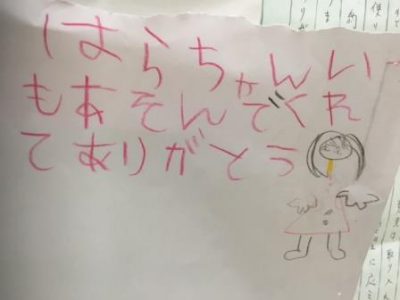 はらちゃんい
もあそんでくれ
てありがとう